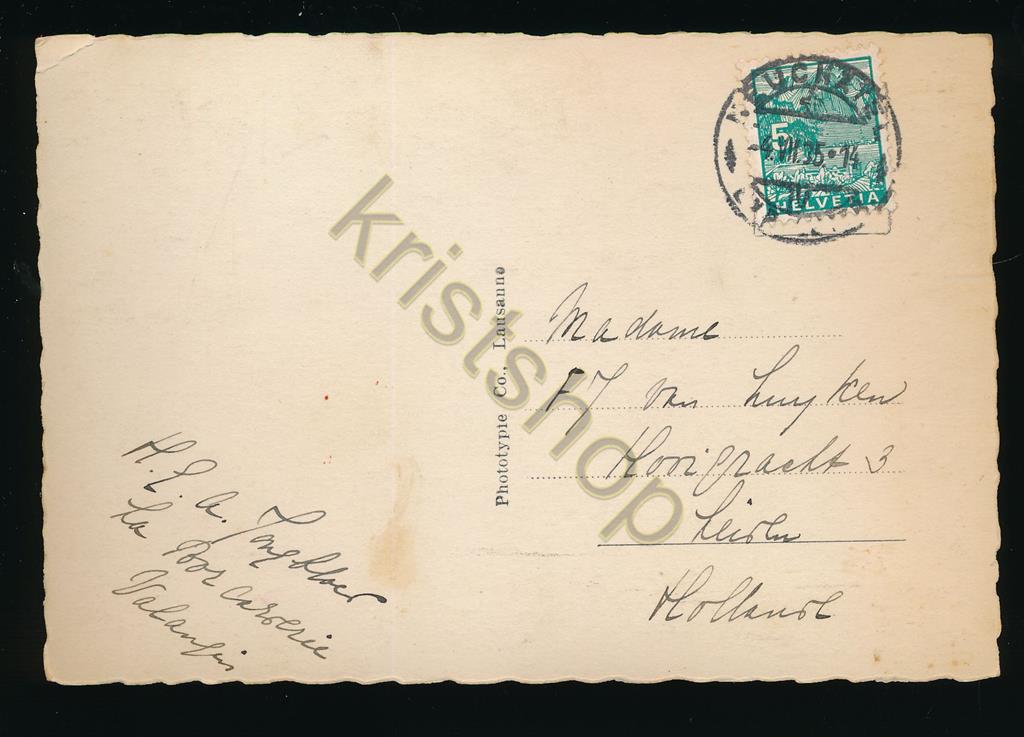 NEUCHATEL
5
-4.VII.35.14
HELVETIA
Phototypie Co., Lausanne
Madame
van Luyken
Hooigracht 3
Leiden
Holland
H.
La
Valangin
kristshop